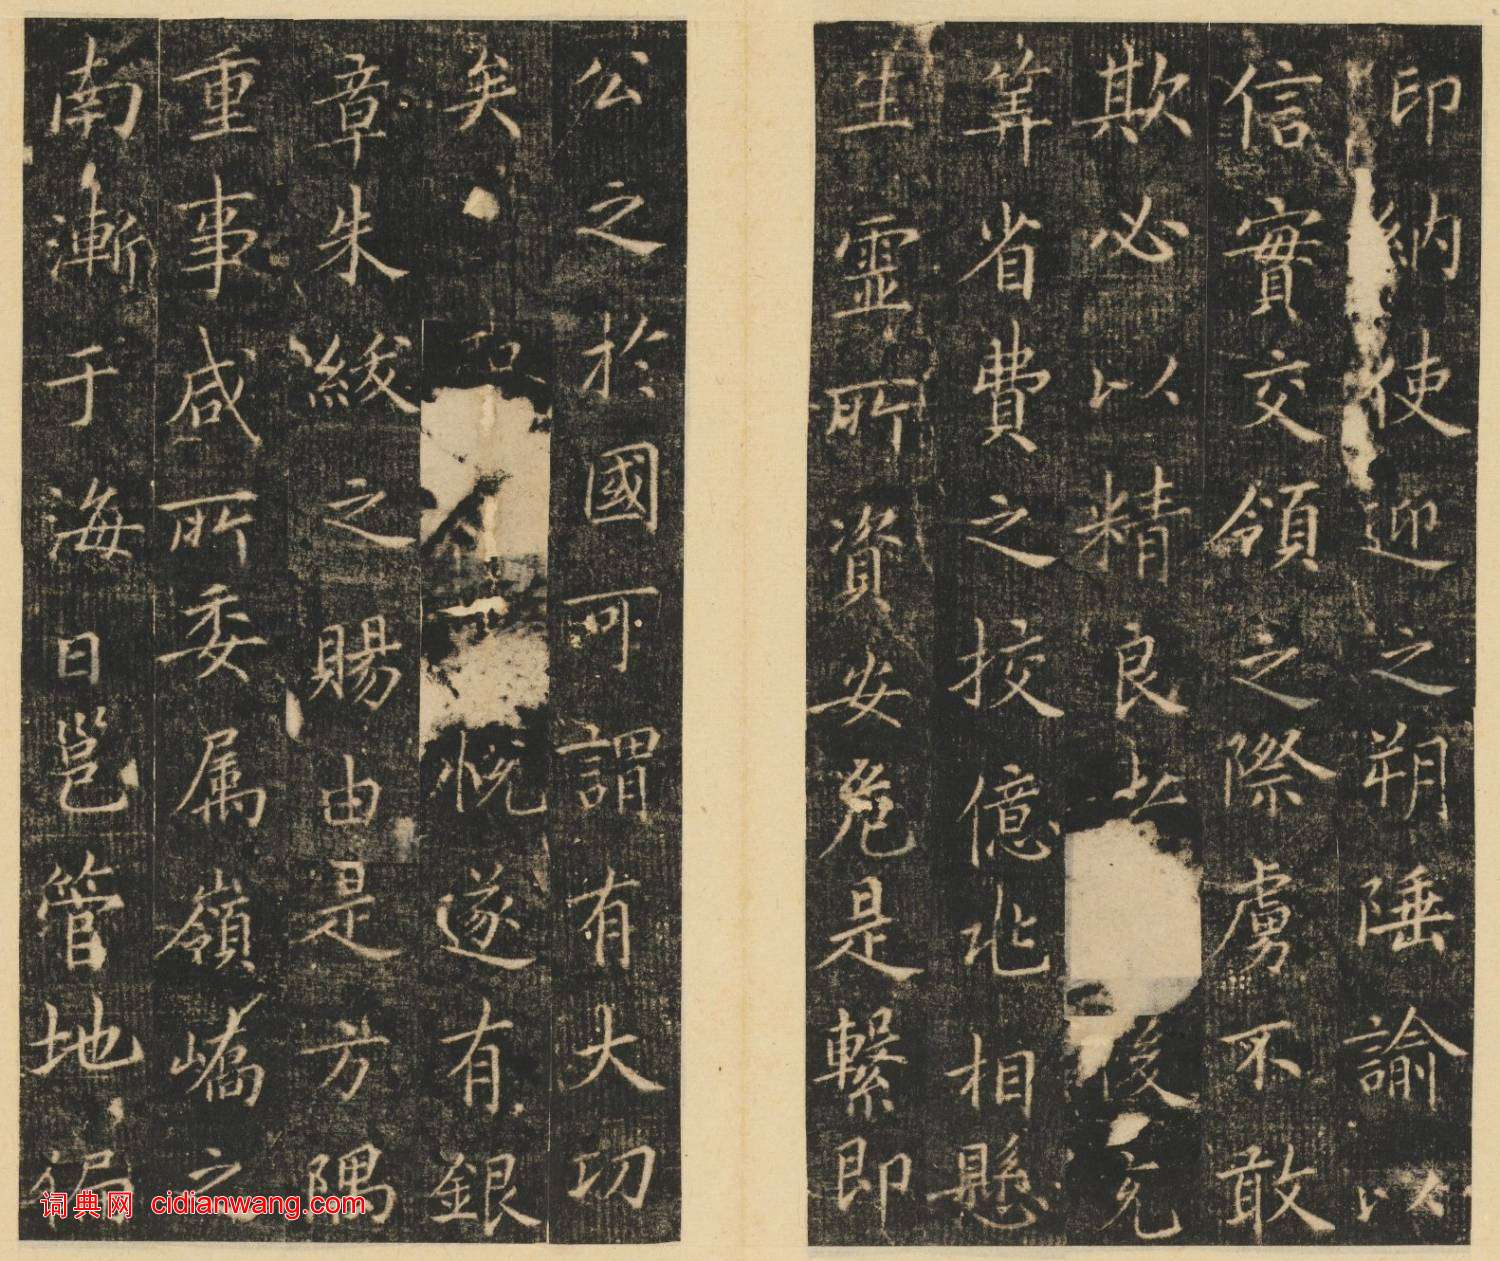 印納使迎之朔陲諭以
信實交領之際虜不敢
欺必以精良上後充
筭省費之挍億兆相懸
生靈所資安危是繫即
公之於國可謂有大功
矣悦遂有銀
章朱紱之賜由是方隅
重事咸所委属嶺嶠之
南漸于海日邕管地褊
词典网 cidianwang.com